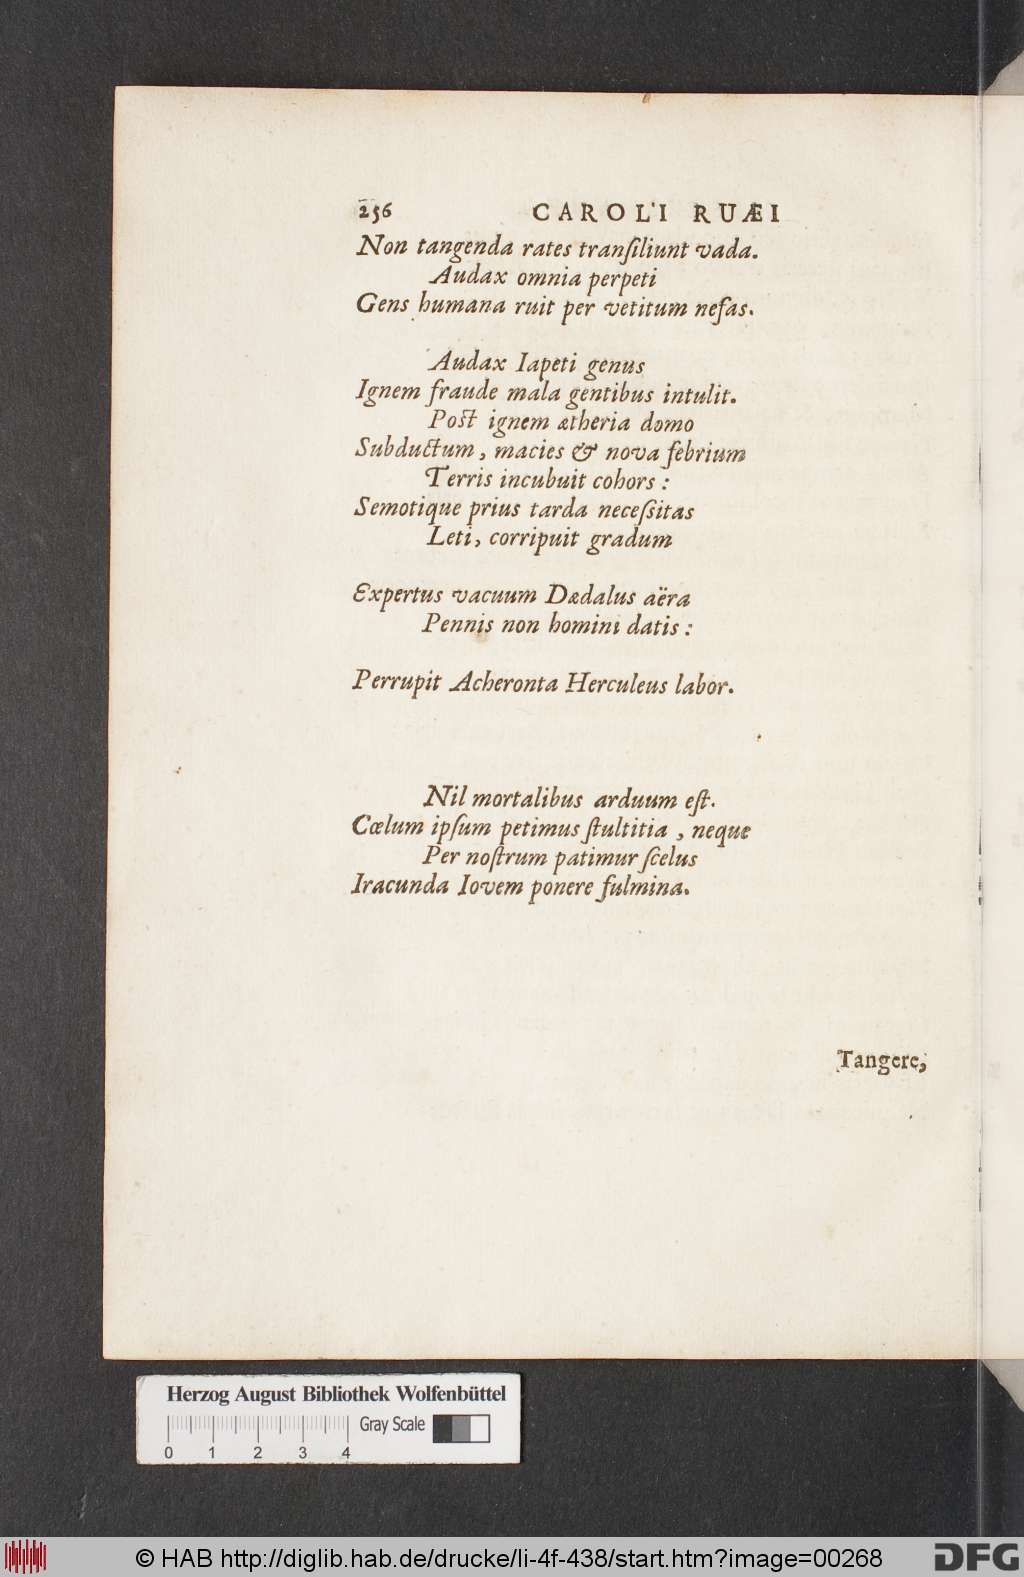 256 CAROLI RUÆI
Non tangenda rates tranſiliunt vada.
Audax omnia perpeti
Gens humana ruit per vetitum nefas.
Audax Iapeti genus
Ignem fraude mala gentibus intulit.
Post ignem ætheria domo
Subductum, macies & nova febrium
Terris incubuit cohors:
Semotique prius tarda neceſsitas
Leti, corripuit gradum
Expertus vacuum Dædalus aëra
Pennis non homini datis:
Perrupit Acheronta Herculeus labor.
Nil mortalibus arduum eſt.
Cœlum ipſum petimus ſtultitia, neque
Per noſtrum patimur ſcelus
Iracunda Iovem ponere fulmina.
Tangere,
Herzog August Bibliothek Wolfenbüttel
Gray Scale
0 1 2 3 4
© HAB http://diglib.hab.de/drucke/li-4f-438/start.htm?image=00268
DFG